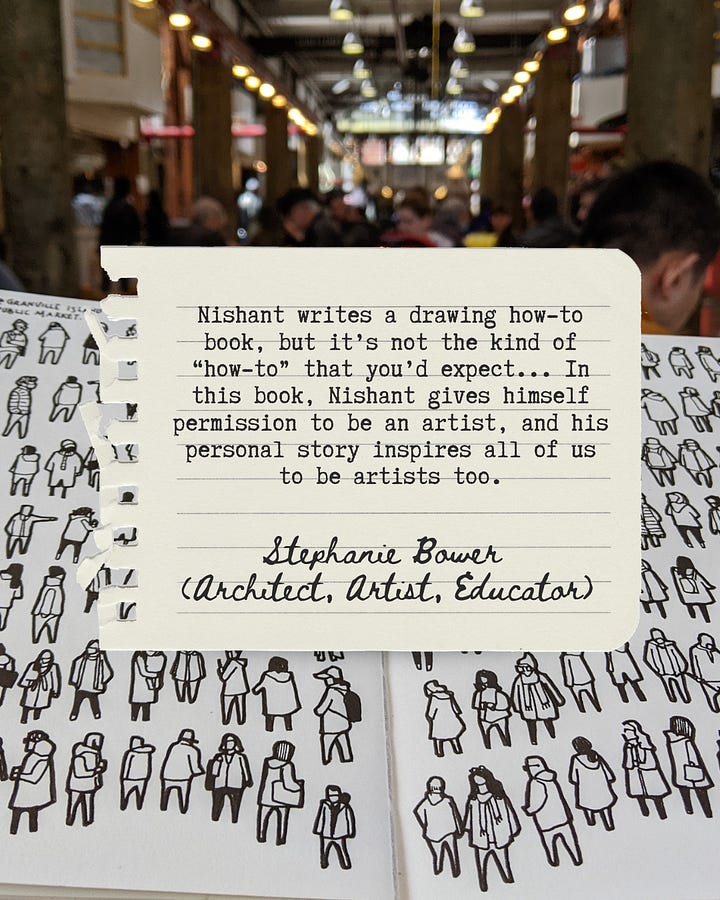 GRANVILLE ISLAND
PUBLIC MARKET.
Nishant writes a drawing how-to
book, but it's not the kind of
“how-to” that you'd expect... In
this book, Nishant gives himself
permission to be an artist, and his
personal story inspires all of us
to be artists too.
Stephanie Bower
(Architect, Artist, Educator)